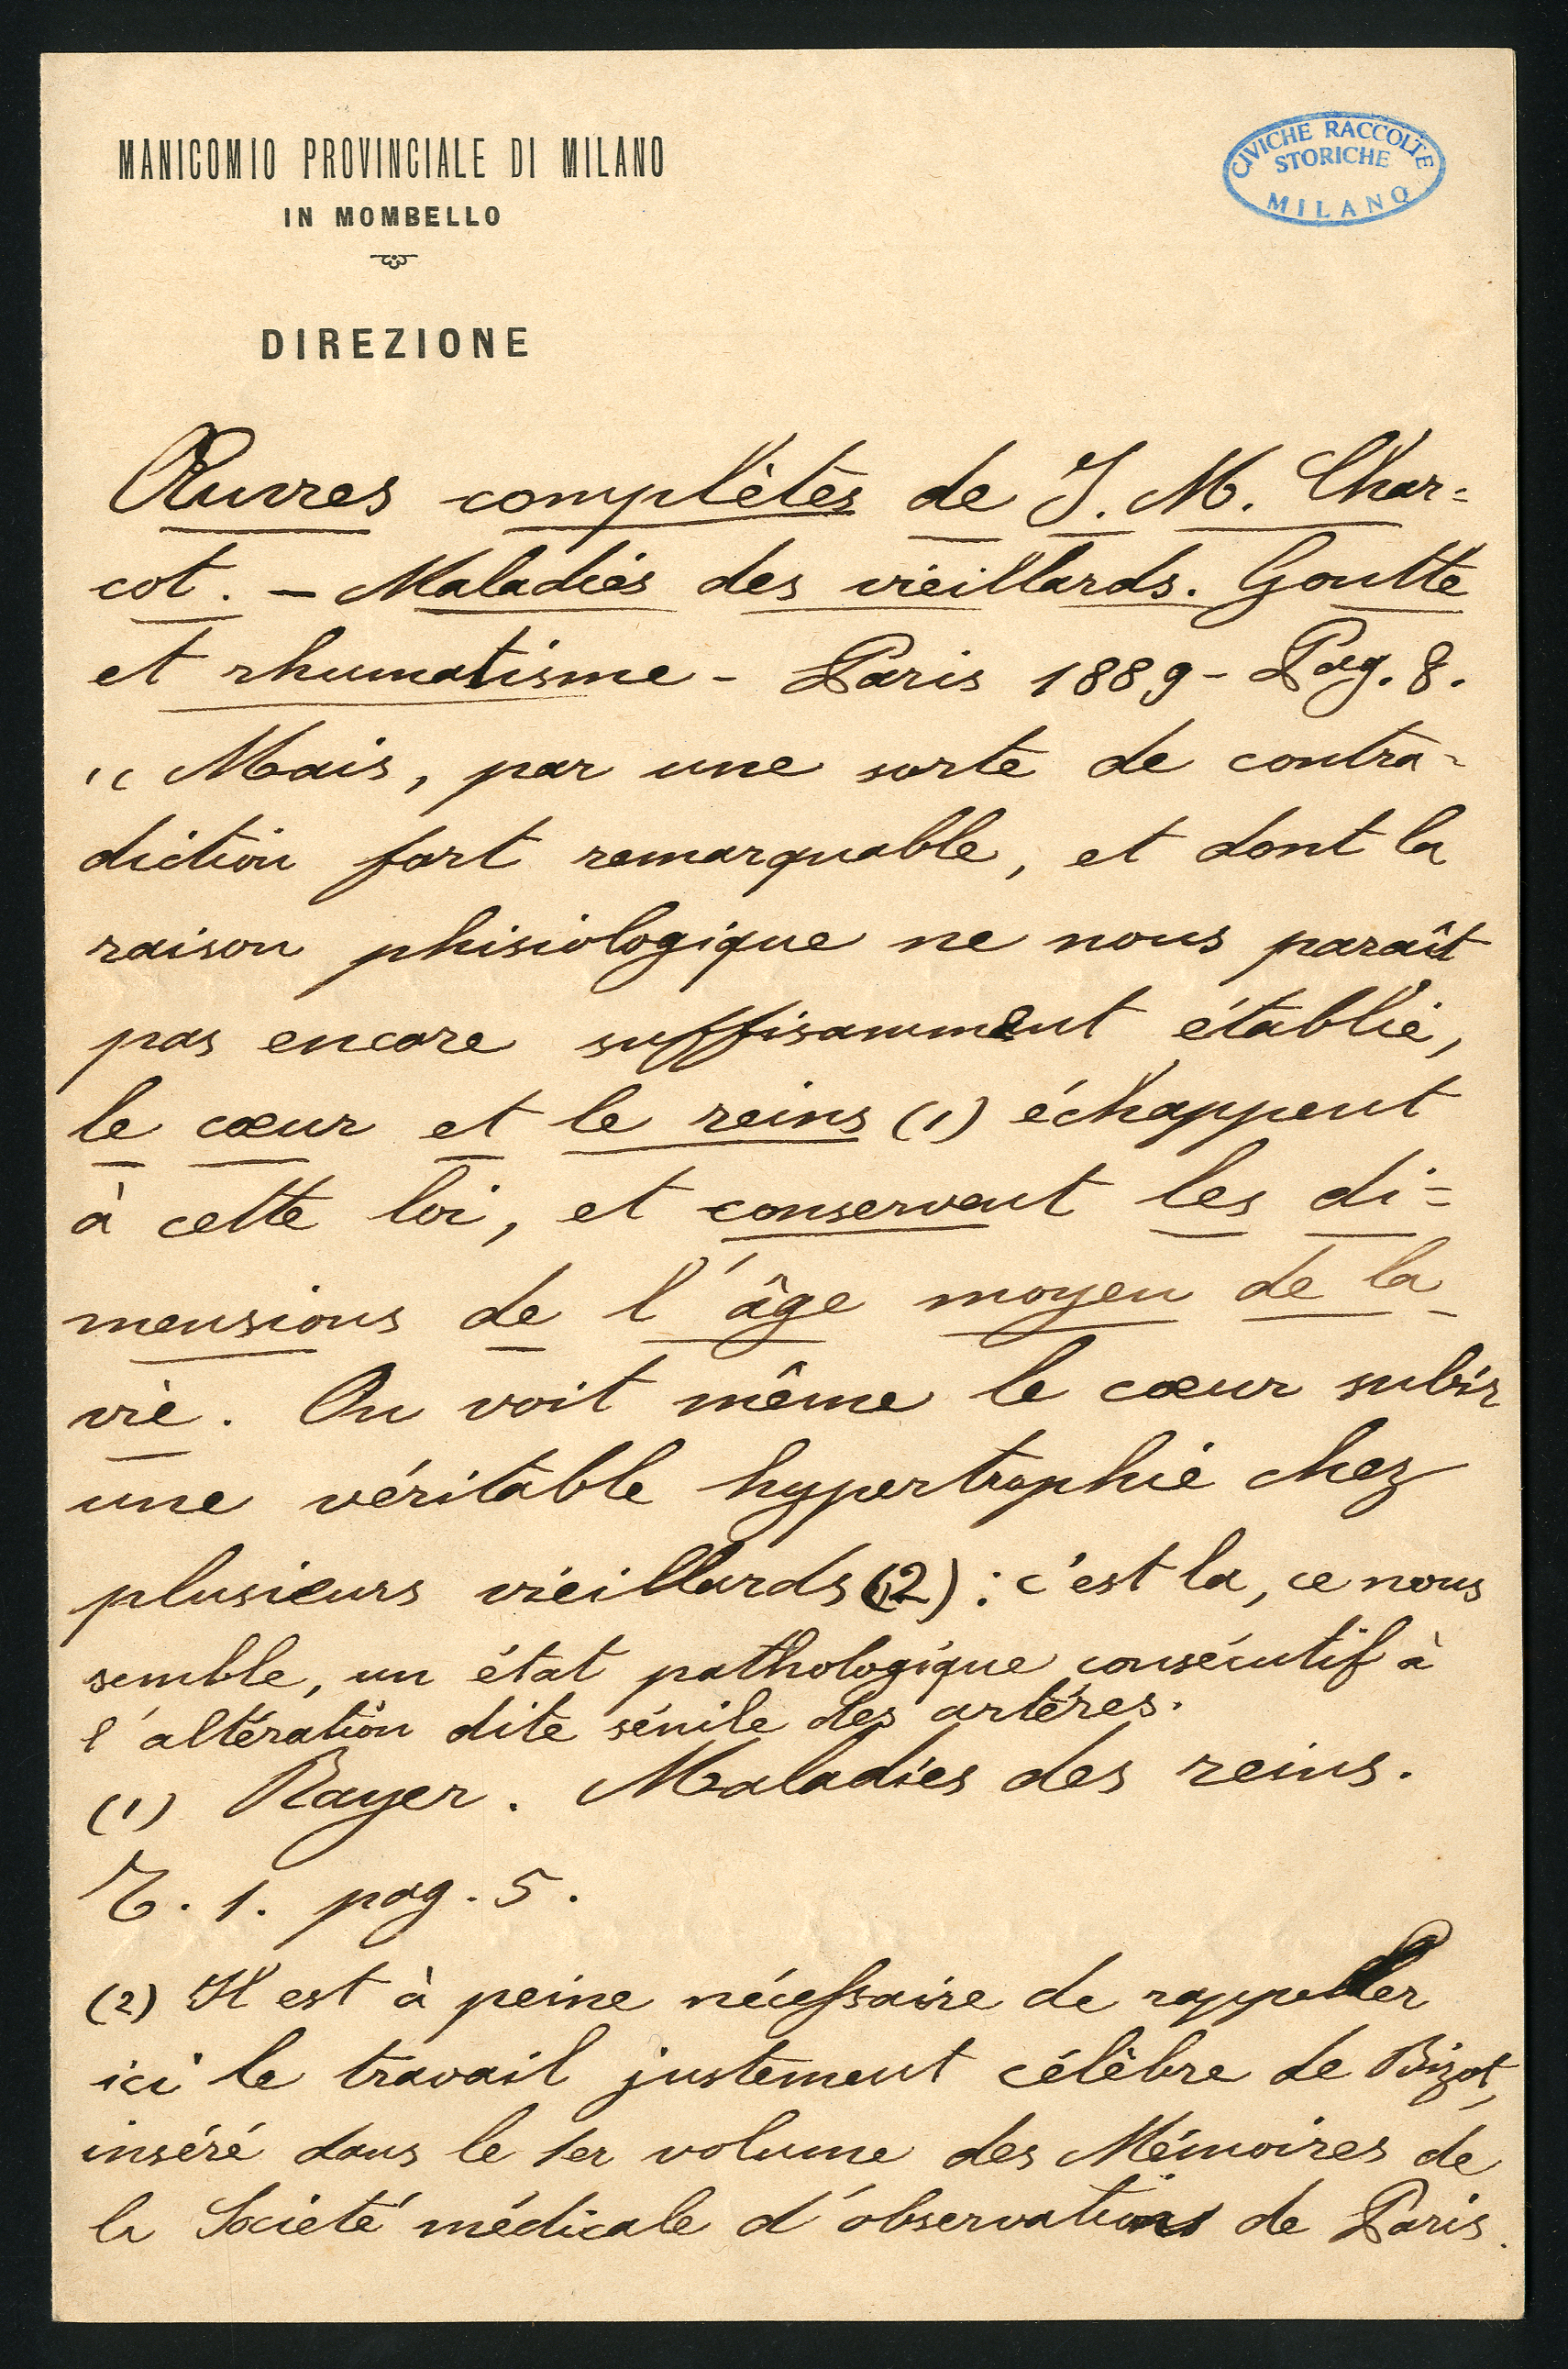 MANICOMIO PROVINCIALE DI MILANO
IN MOMBELLO
DIREZIONE
CIVICHE RACCOLTE
STORICHE
MILANO
Œuvres complètes de J. M. Char=
cot. – Maladies des vieillards. Goutte
et rhumatisme - Paris 1889 - Pag. 8.
"Mais, par une sorte de contra-
diction fort remarquable, et dont la
raison phisiologique ne nous paraît
pas encore suffisamment établie,
le cœur et le reins (1) échappent
à cette loi, et conservent les di=
mensions de l'âge moyen de la
vie. On voit même le cœur subir
une véritable hypertrophie chez
plusieurs vieillards (2): c'est la, ce nous
semble, un état pathologique consécutif à
l'altération dite sénile des artères.
(1) Rayer. Maladies des reins.
T. 1. pag. 5.
(2) Il est à peine nécessaire de rappeller
ici le travail justement célèbre de Bizot,
inséré dans le 1er volume des Mémoires de
la Societé médicale d'observations de Paris.